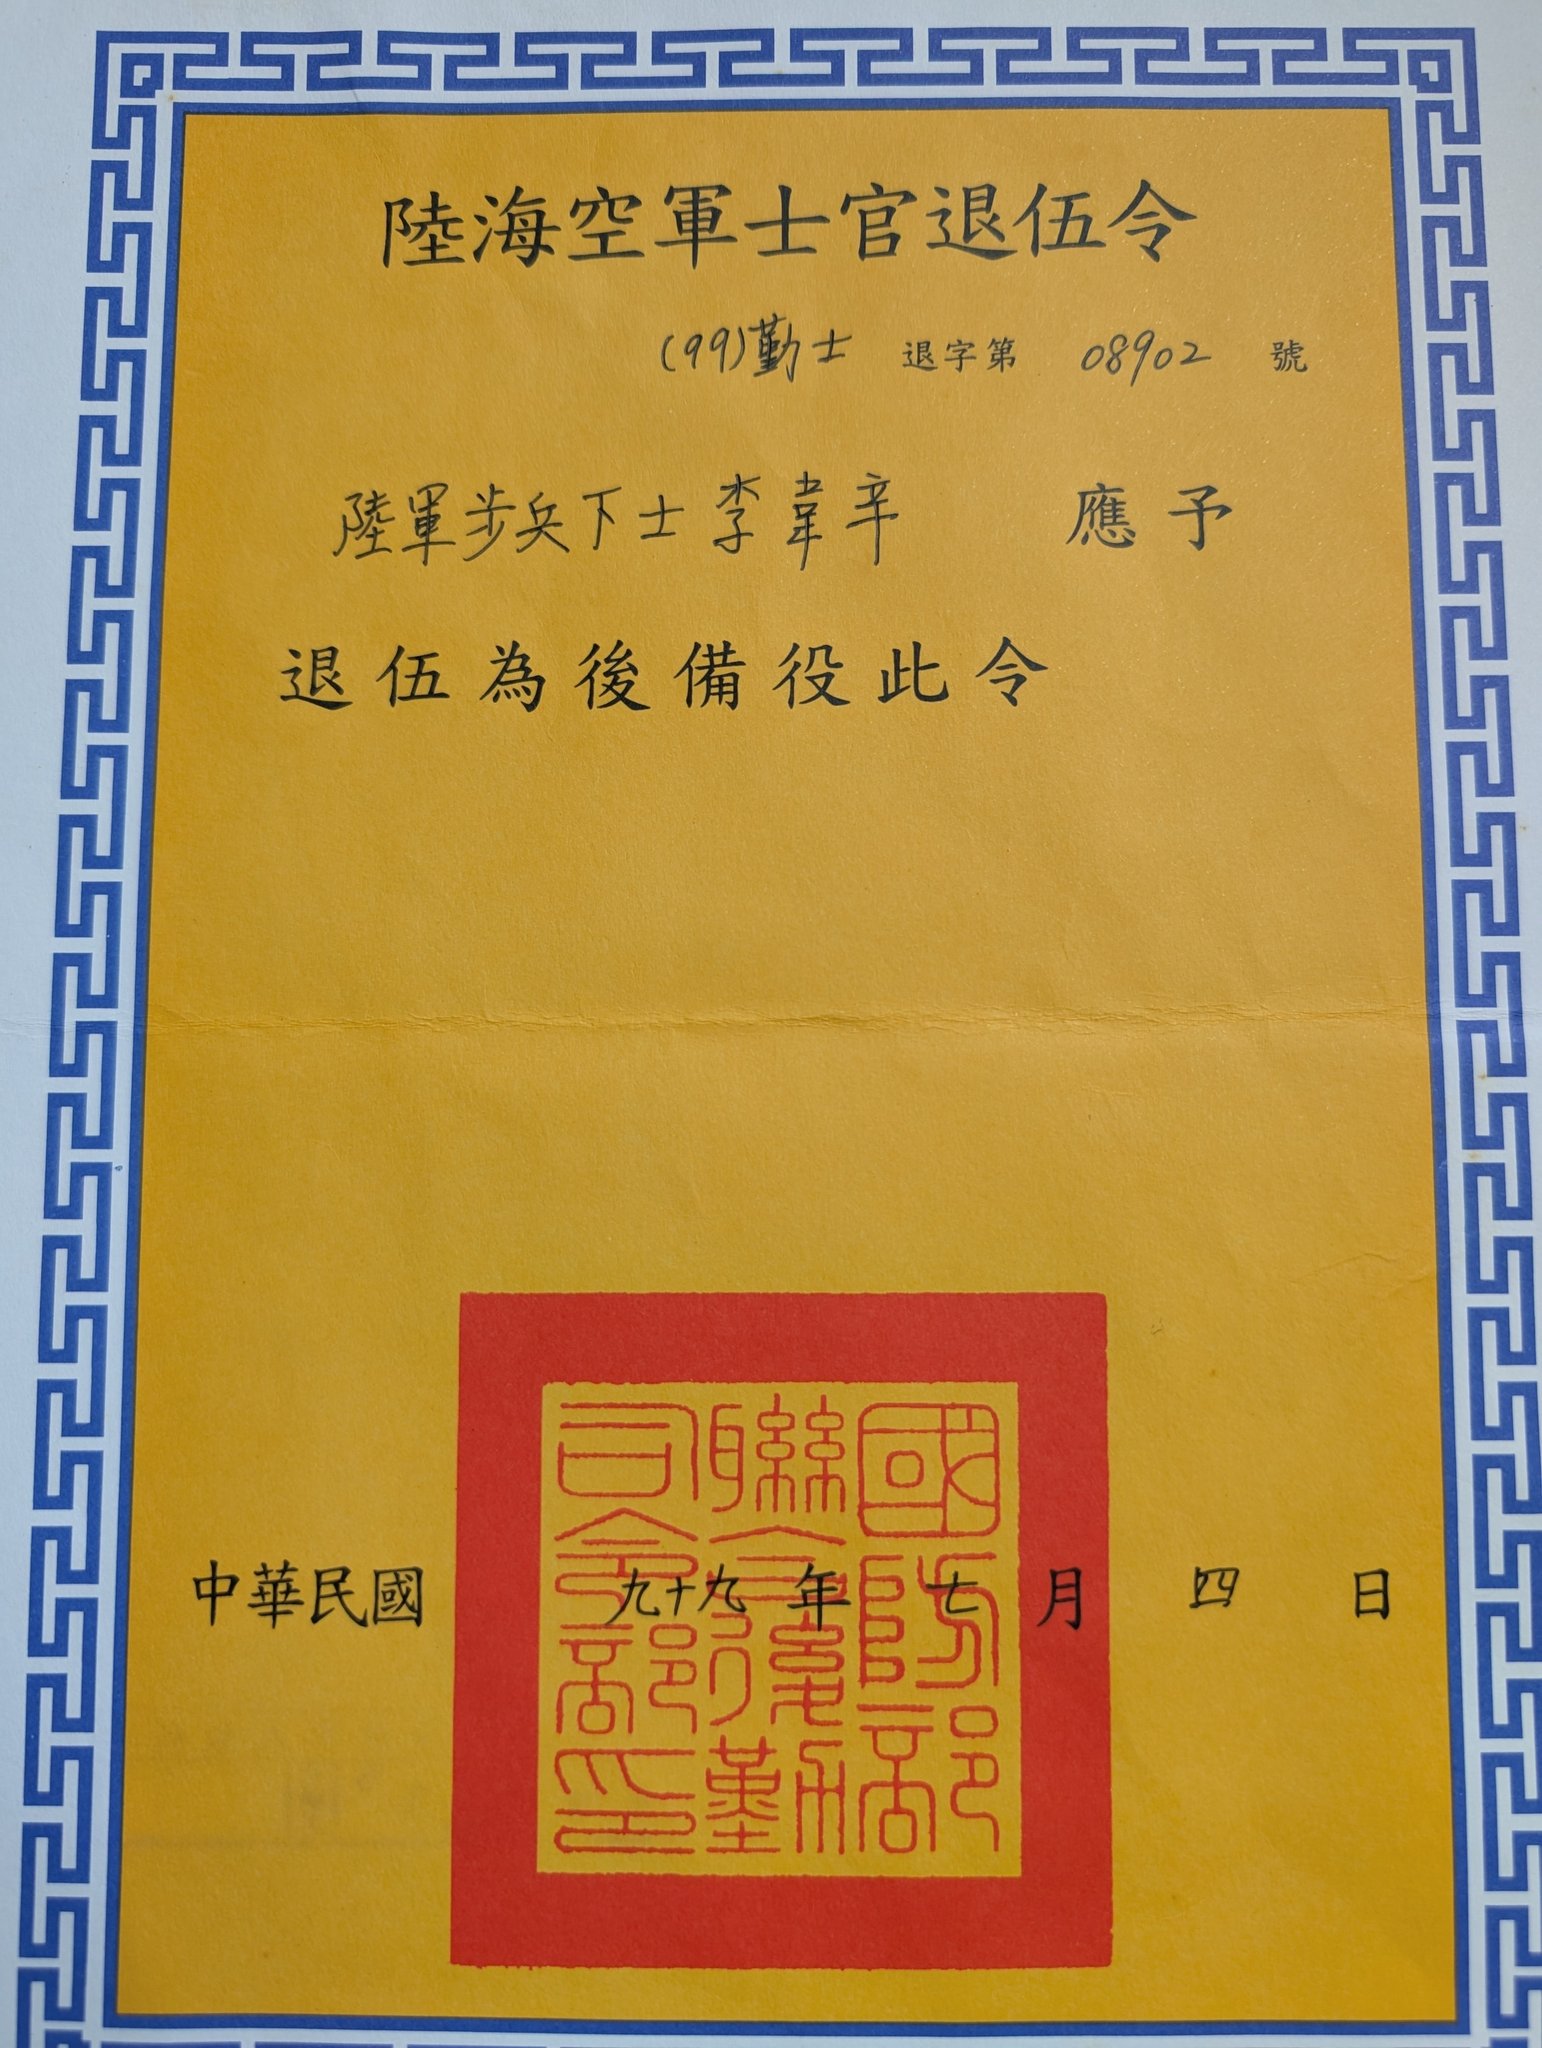 陸海空軍士官退伍令
(99)勤士 退字第 08902 號
陸軍步兵下士李韋辛 應予
退伍為後備役此令
中華民國 九十九 年 七 月 四 日
國防部
聯合後勤
司令部印